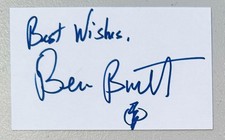 Best Wishes.
Ben Burtt